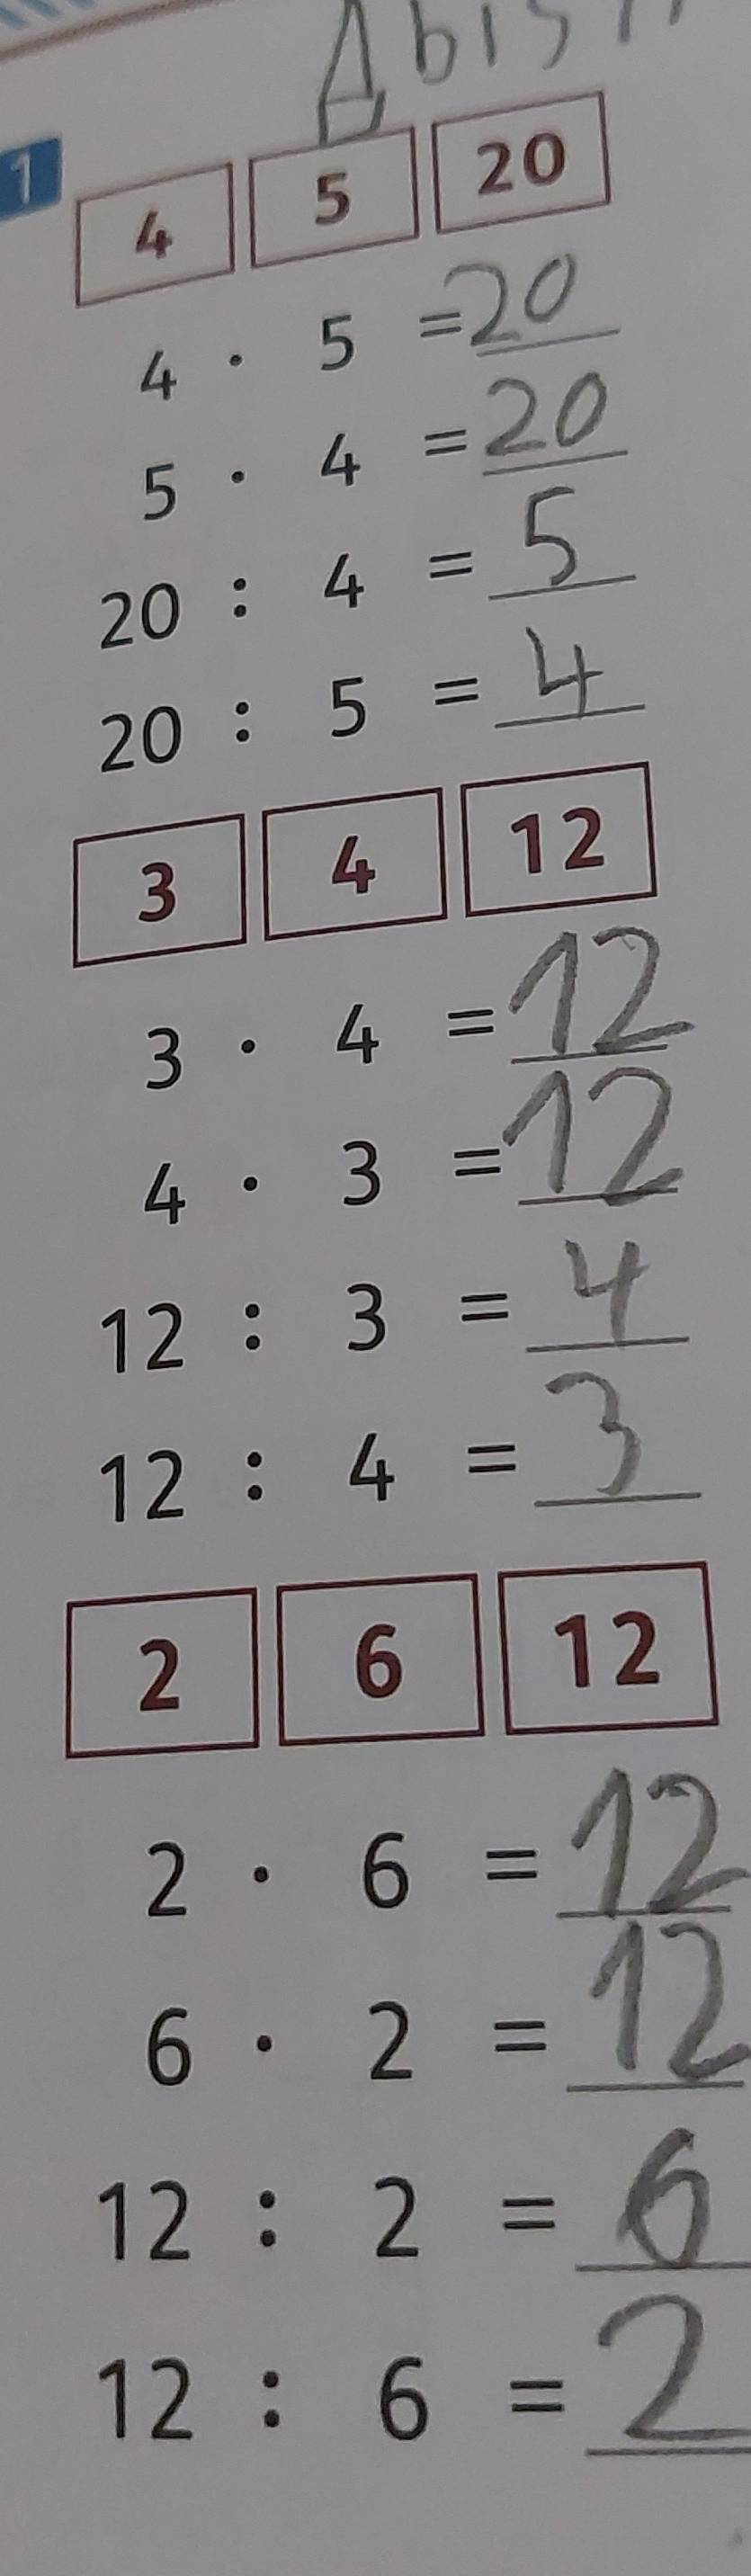 1
4 5 20
4 · 5 = 20
5 · 4 = 20
20 : 4 = 5
20 : 5 = 4
3 4 12
3 · 4 = 12
4 · 3 = 12
12 : 3 = 4
12 : 4 = 3
2 6 12
2 · 6 = 12
6 · 2 = 12
12 : 2 = 6
12 : 6 = 2